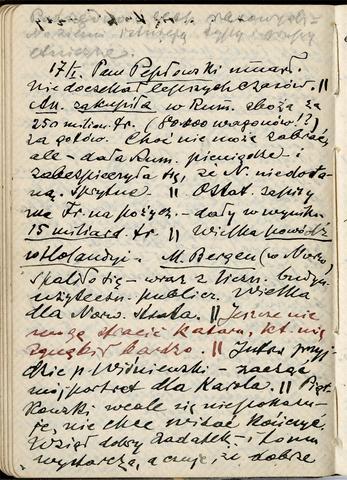 17/I. Pan Pepłowski umarł.
nie doczekał lepszych czasów. ||
An. zakupiła w Rum. zboża za
250 milion. fr. (80.000 wagonów!?)
za gotów. Choć nie może zabrać,
ale – dała Rum. pieniądze i
zabezpieczyła się, że N. niedosta-
ną. Sprytne || Ostat. zapisy
na Fr. na pożycz. – dały w wyniku
15 miliard. fr. || Wielka powódź
w Holandyi. – M. Bergen (w Norw.)
spaliło się – wraz z liczn. budyn.
użyteczn. publicz. Wielka
dla Norw. strata. || Jeszcze nie
mogę stracić kataru, kt. mię
zgnębił bardzo. || Jutro przyj-
dzie p Wiśniewski – zacząć
mój portret dla Karola. ||
kowski wcale się nie pokazu-
je, nie chce widać kończyć.
Wziął dobry zadatek – i to mu
wystarcza, a czuje, że dobrze